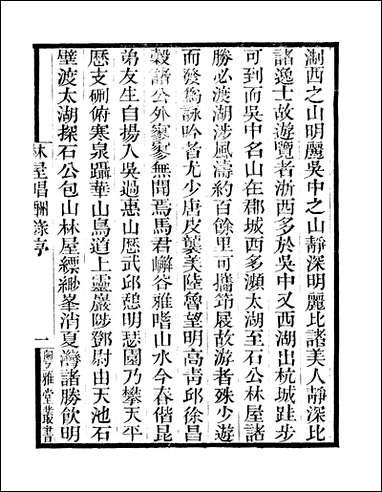 淛西之山明麗吳中之山靜深明麗比諸美人靜深比
諸逸士故遊覽者浙西多於吳中又西湖出杭城跬步
可到而吳中名山在郡城西多瀕太湖至石公林屋諸
勝必渡湖涉風濤約百餘里可攜筇屐故遊者殊少遊
而發爲詠吟者尤少唐皮襲美陸魯望明高靑邱徐昌
穀諸公外寥寥無聞焉馬君嶰谷雅嗜山水今春偕昆
弟友生自揚入吳過惠山歷武邱憩明瑟園乃攀天平
歷支硎俯寒泉躡華山鳥道上靈巖陟鄧尉由天池石
壁渡太湖探石公包山林屋縹緲峯消夏灣諸勝飲明
林屋唱酬錄序
一
粤雅堂叢書